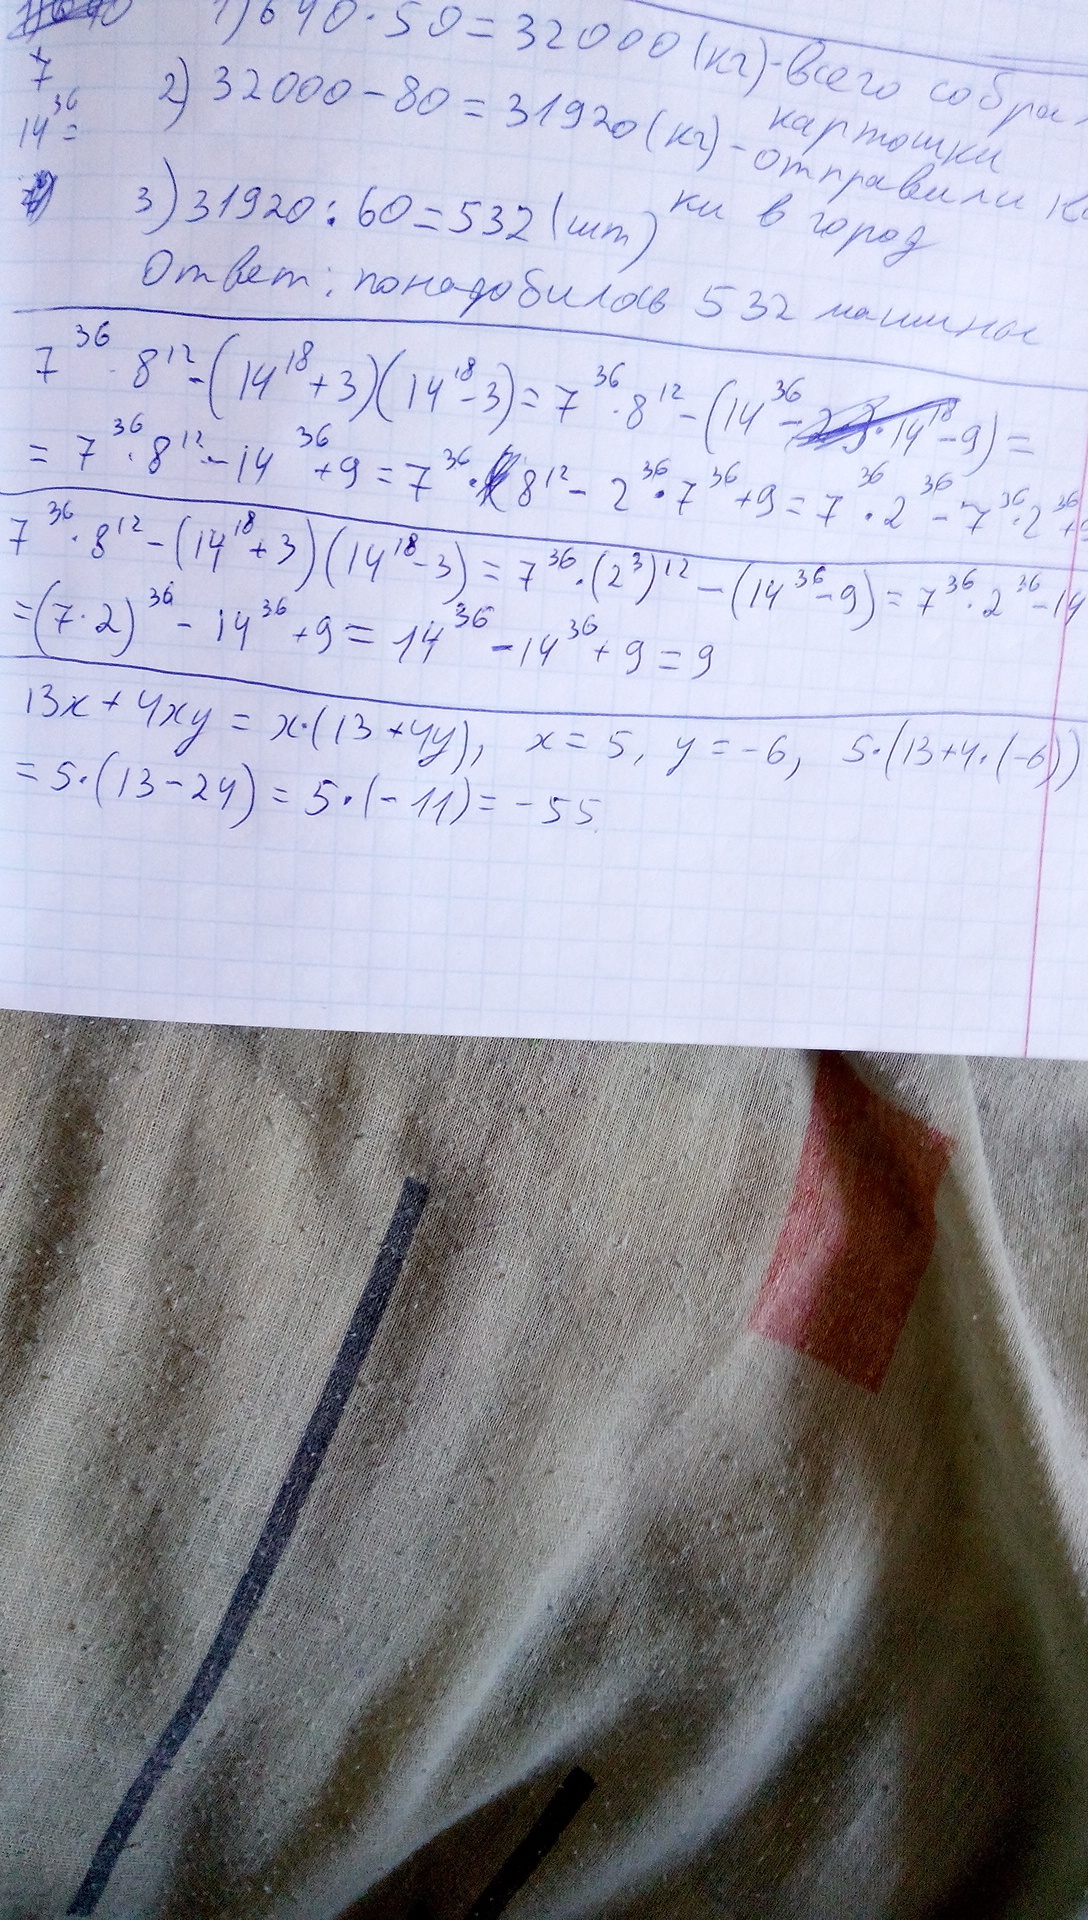 1) 640 · 50 = 32000 (кг) - всего собра
картошки
7
14³⁶ =
2) 32000 - 80 = 31920 (кг) - отправили
ки в город
3) 31920 : 60 = 532 (шт)
Ответ: понадобилось 532 машины
7³⁶ · 8¹² - (14¹⁸ + 3)(14¹⁸ - 3) = 7³⁶ · 8¹² - (14³⁶ - 9) =
= 7³⁶ · 8¹² - 14³⁶ + 9 = 7³⁶ · 8¹² - 2³⁶ · 7³⁶ + 9 = 7³⁶ · 2³⁶ - 7³⁶ · 2³⁶ + 9
7³⁶ · 8¹² - (14¹⁸ + 3)(14¹⁸ - 3) = 7³⁶ · (2³)¹² - (14³⁶ - 9) = 7³⁶ · 2³⁶ - 14
= (7 · 2)³⁶ - 14³⁶ + 9 = 14³⁶ - 14³⁶ + 9 = 9
13x + 4xy = x · (13 + 4y), x = 5, y = -6, 5 · (13 + 4 · (-6))
= 5 · (13 - 24) = 5 · (-11) = -55